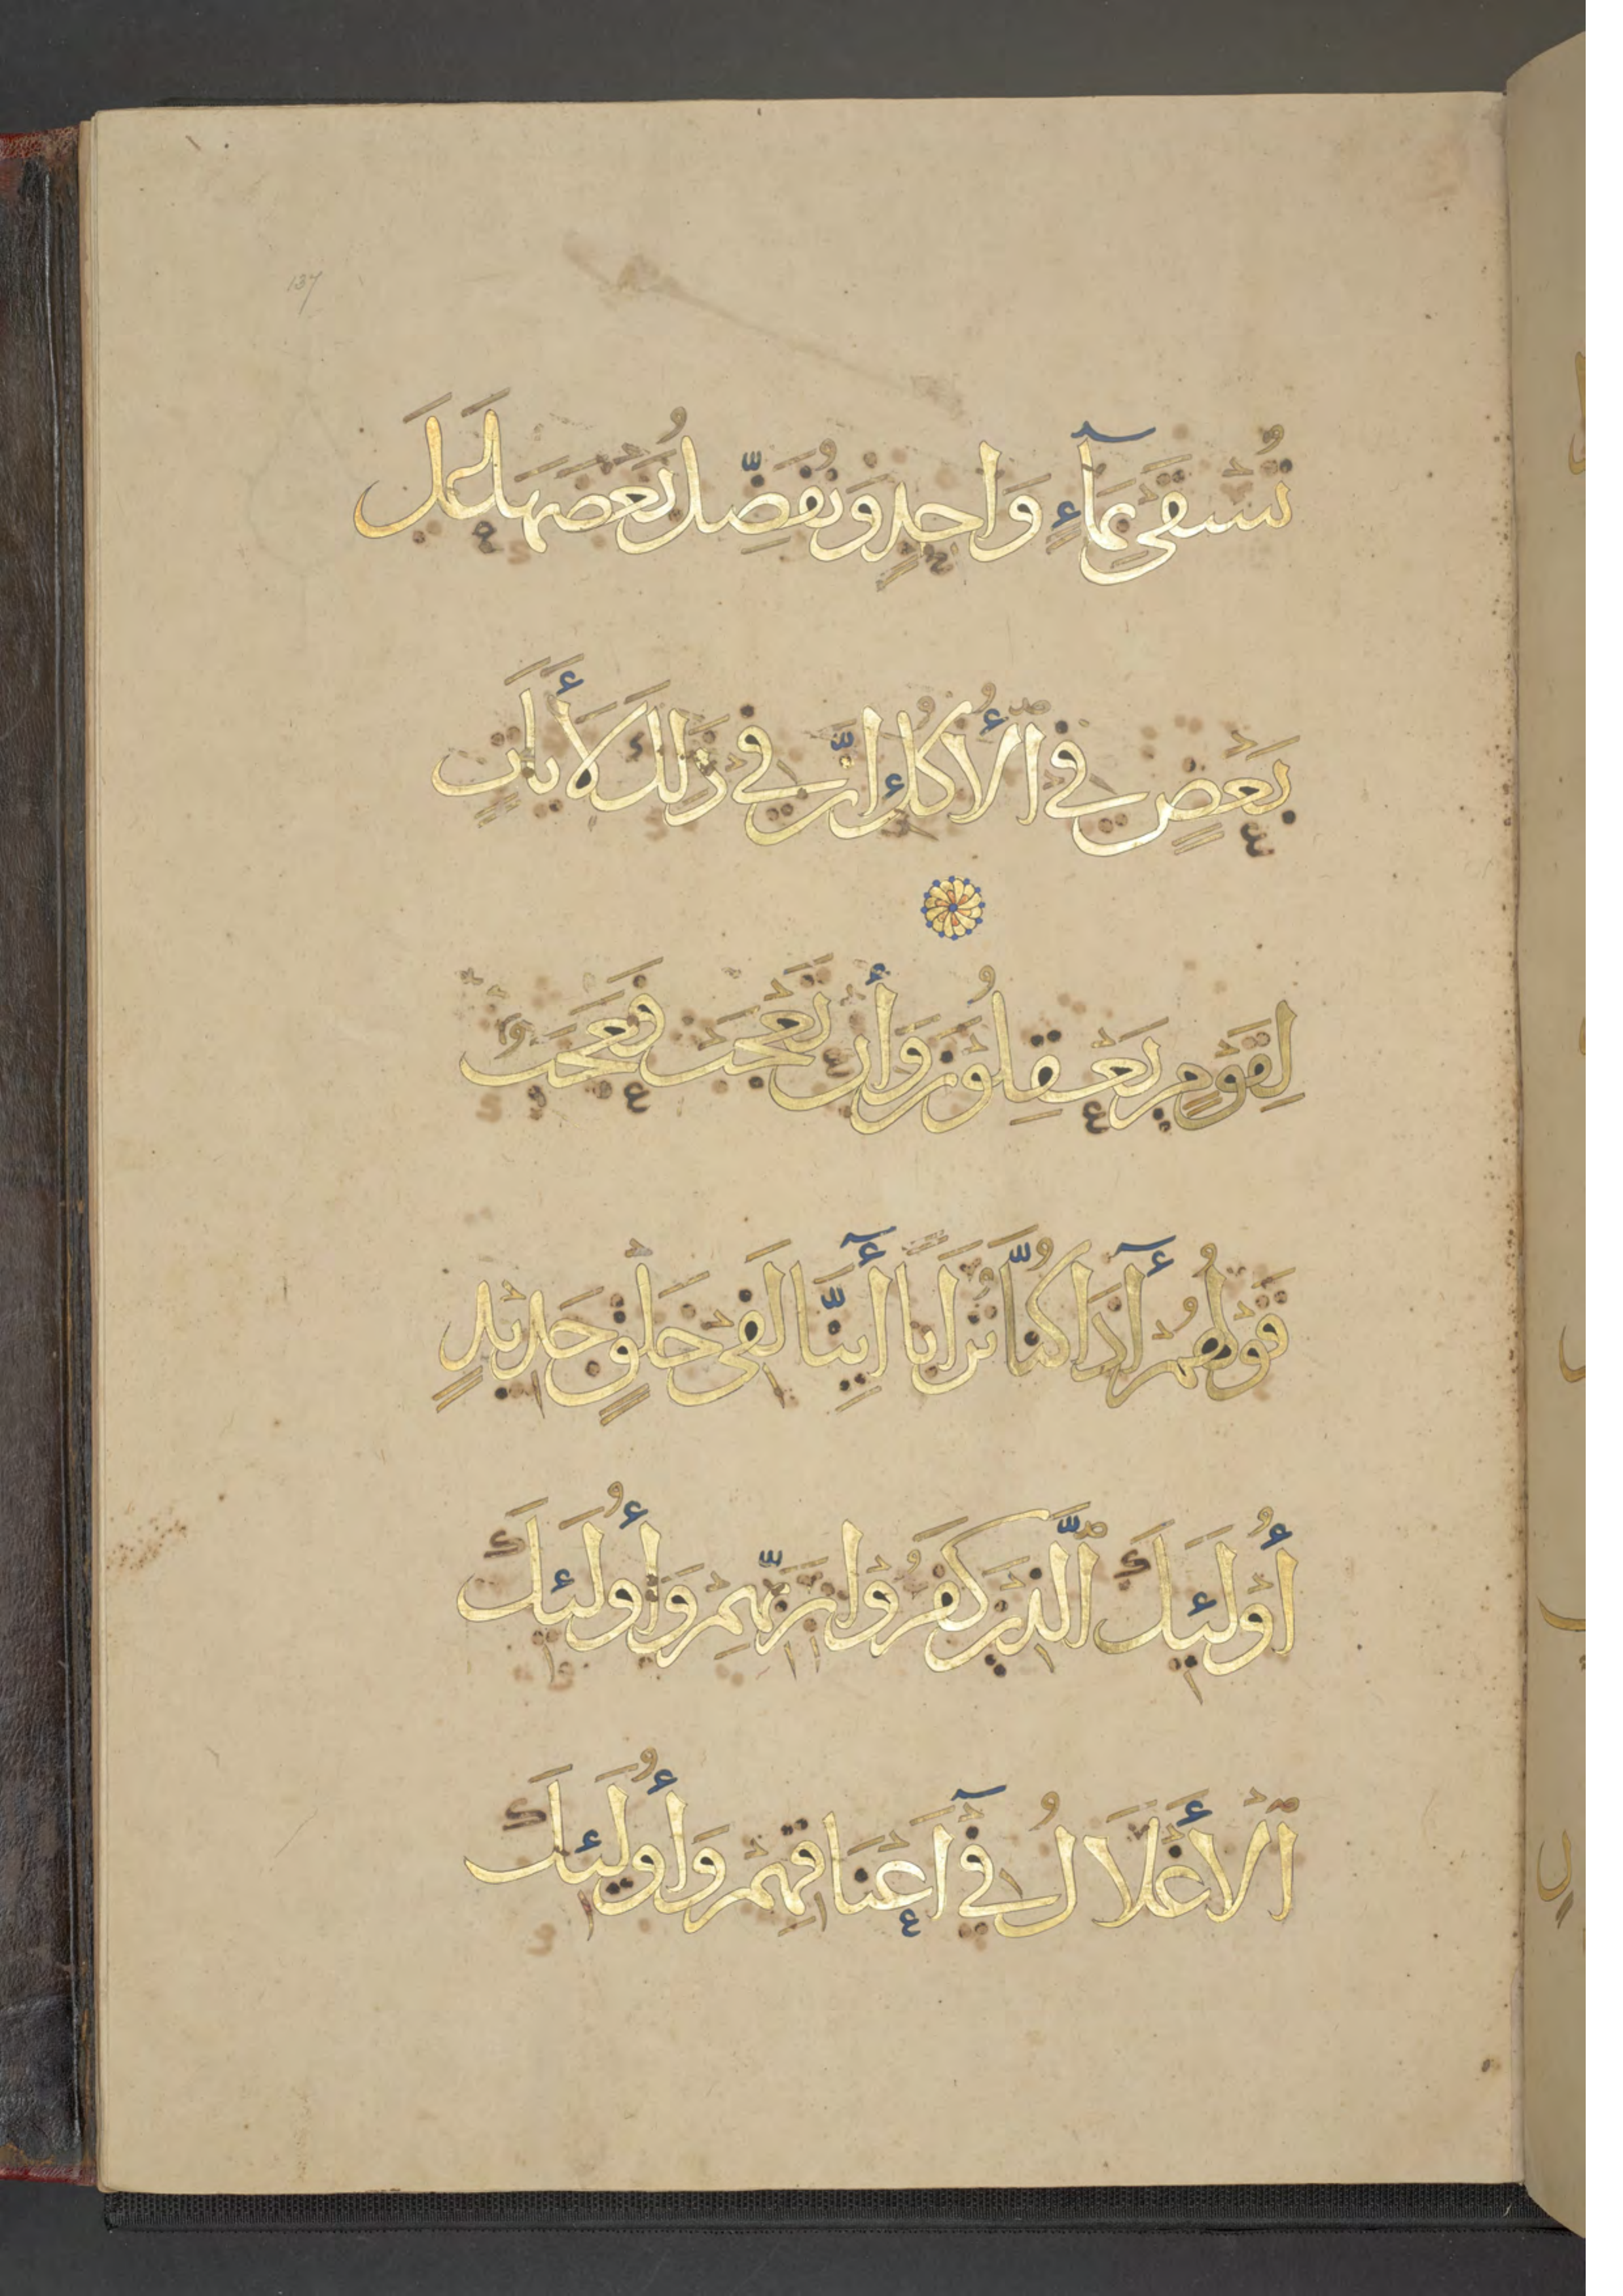 137
تُسْقَى بِمَآءٍ وَاحِدٍ وَنُفَضِّلُ بَعْضَهَا عَلَى
بَعْضٍ فِي ٱلْأُكُلِ إِنَّ فِي ذَلِكَ لَأَيَاتٍ
لِقَوْمٍ يَعْقِلُونَ وَأَن تَعْجَبْ فَعَجَبٌ
قَوْلُهُمْ أَذَا كُنَّا تُرَابًا أَيِنَّا لَفِي خَلْقٍ جَدِيدٍ
أُوْلَئِكَ ٱلَّذِينَ كَفَرُوا بِرَبِّهِمْ وَأُولَئِكَ
ٱلْأَغْلَالُ فِي أَعْنَاقِهِمْ وَأُولَئِكَ